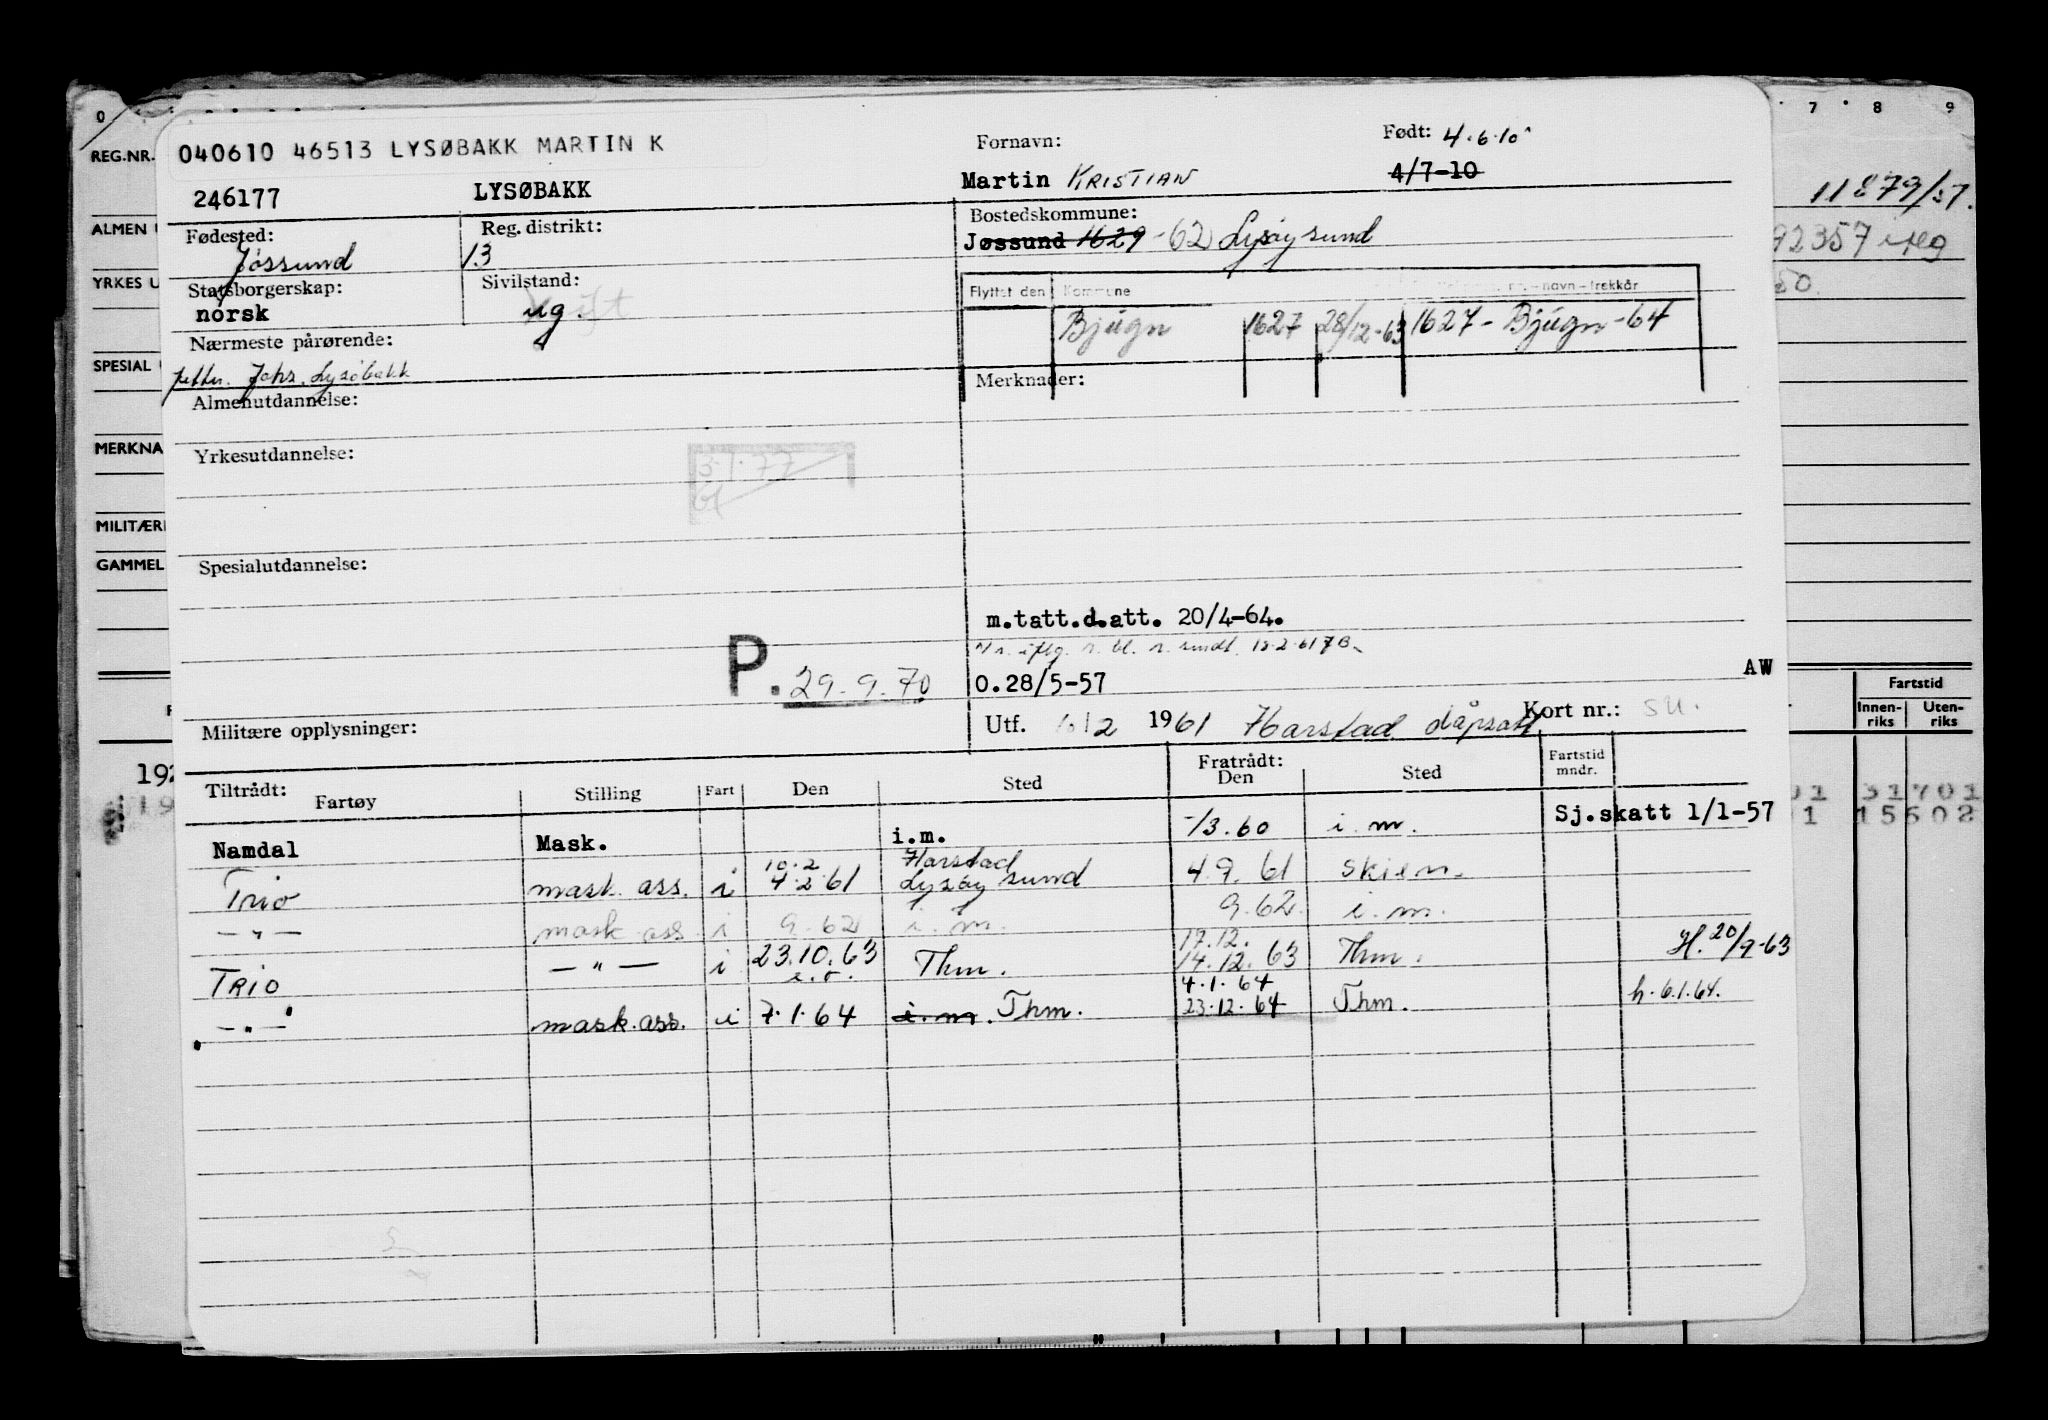 0 7 8 9
REG.NR.
040610 46513 LYSØBAKK MARTIN K
Fornavn:
Født: 4.6.10
246177
LYSØBAKK
Martin KRISTIAN
4/7-10
11879/57.
ALMEN
Fødested:
Reg. distrikt:
Bostedskommune:
Jøssund
13
Jøssund 1629 -62 Lysøysund
92357
YRKES
Statsborgerskap:
Sivilstand:
Flyttet den
Kommune
norsk
ug
Bjugn
1627
28/12-63
1627 - Bjugn - 64
Nærmeste pårørende:
SPESIAL
fetter. Johs. Lysøbakk
Merknader:
Almenutdannelse:
MERKNA
Yrkesutdannelse:
3.1.77
MILITÆR
GAMMEL
Spesialutdannelse:
m.tatt.d.att. 20/4-64.
P. 29.9.70
0.28/5-57
AW
Fartstid
Innen-
riks
Uten-
riks
Militære opplysninger:
Utf. 10/2 1961 Harstad dåpsatt
Kort nr.: su.
Tiltrådt:
Fartøy
Stilling
Fart
Den
Sted
Fratrådt:
Den
Sted
Fartstid
mndr.
31701
15602
Namdal Mask. i.m. -/3.60 i.m. Sj.skatt 1/1-57
10.2 Harstad
Trio mask. ass. i 4.2.61 Lysøysund 4.9.61 Skien.
— " — mask ass i 9.62 i.m. 9.62. i.m.
17.12.
TRIO — " — i 23.10.63 Thm. 14.12.63 Thm. H. 20/9-63
e.o.
4.1.64
— " — mask.ass. i 7.1.64 i.m. Thm. 23.12.64 Thm. h. 6.1.64.